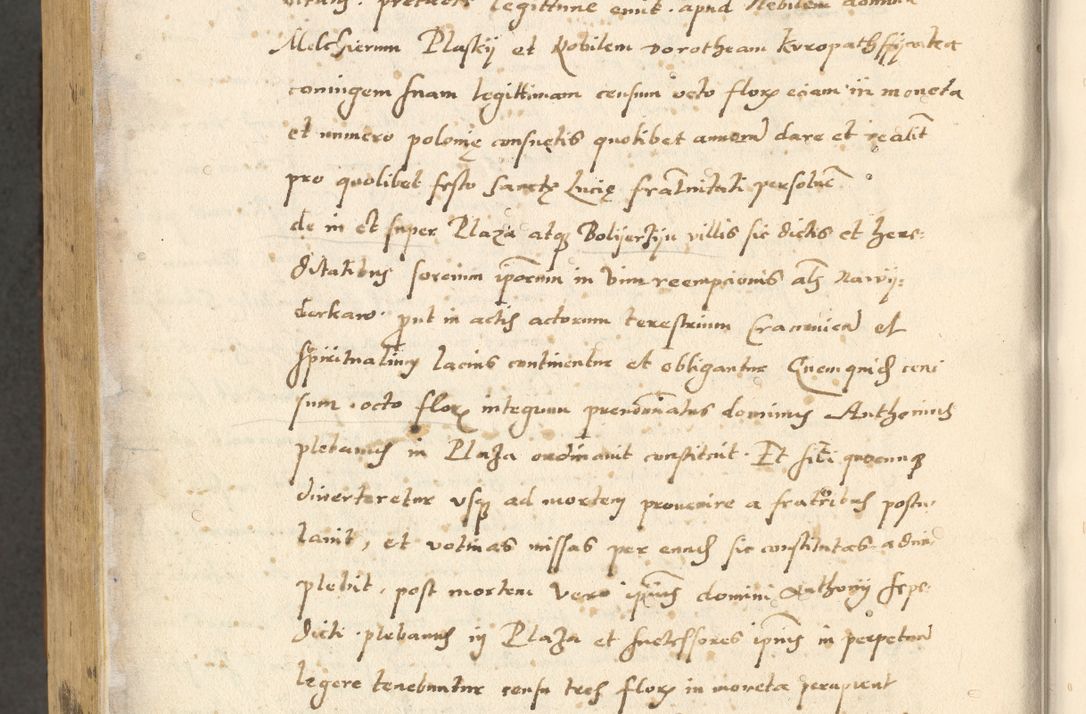 legittime emit apud Nobilem dominum
Melchiorum Plaskij et Nobilem Dorotheam
coniugem suam legittimam censum octo flor eciam in moneta
et numero polonię consuetis quotlibet annorum dare et realit
pro quolibet festo Sanctę Lucię fraternitati persoluere
de in et super Plaza atque villis sic dictis et here:
ditatibus sorcium ipsorum in vim reempcionis als nawij:
derkaw prout in actis actorum terestrium Cracouien et
Spiritualium lacius continentur et obligantur Quem quid cen
sum octo flor integrum prenominatus dominus Anthonius
plebanus in Plaza ordinauit constituit Et sibi quocunq
diuerteretur usq ad mortem prouenire a fratribus postu
lauit, et votiuas missas per eund sic constitutas adim
plebit, post mortem vero ipsius domini Anthonij sepe
dicti plebanus in Plaza et successores ipsius in perpetuum
legere tenebuntur censu tres flor in moneta percipient